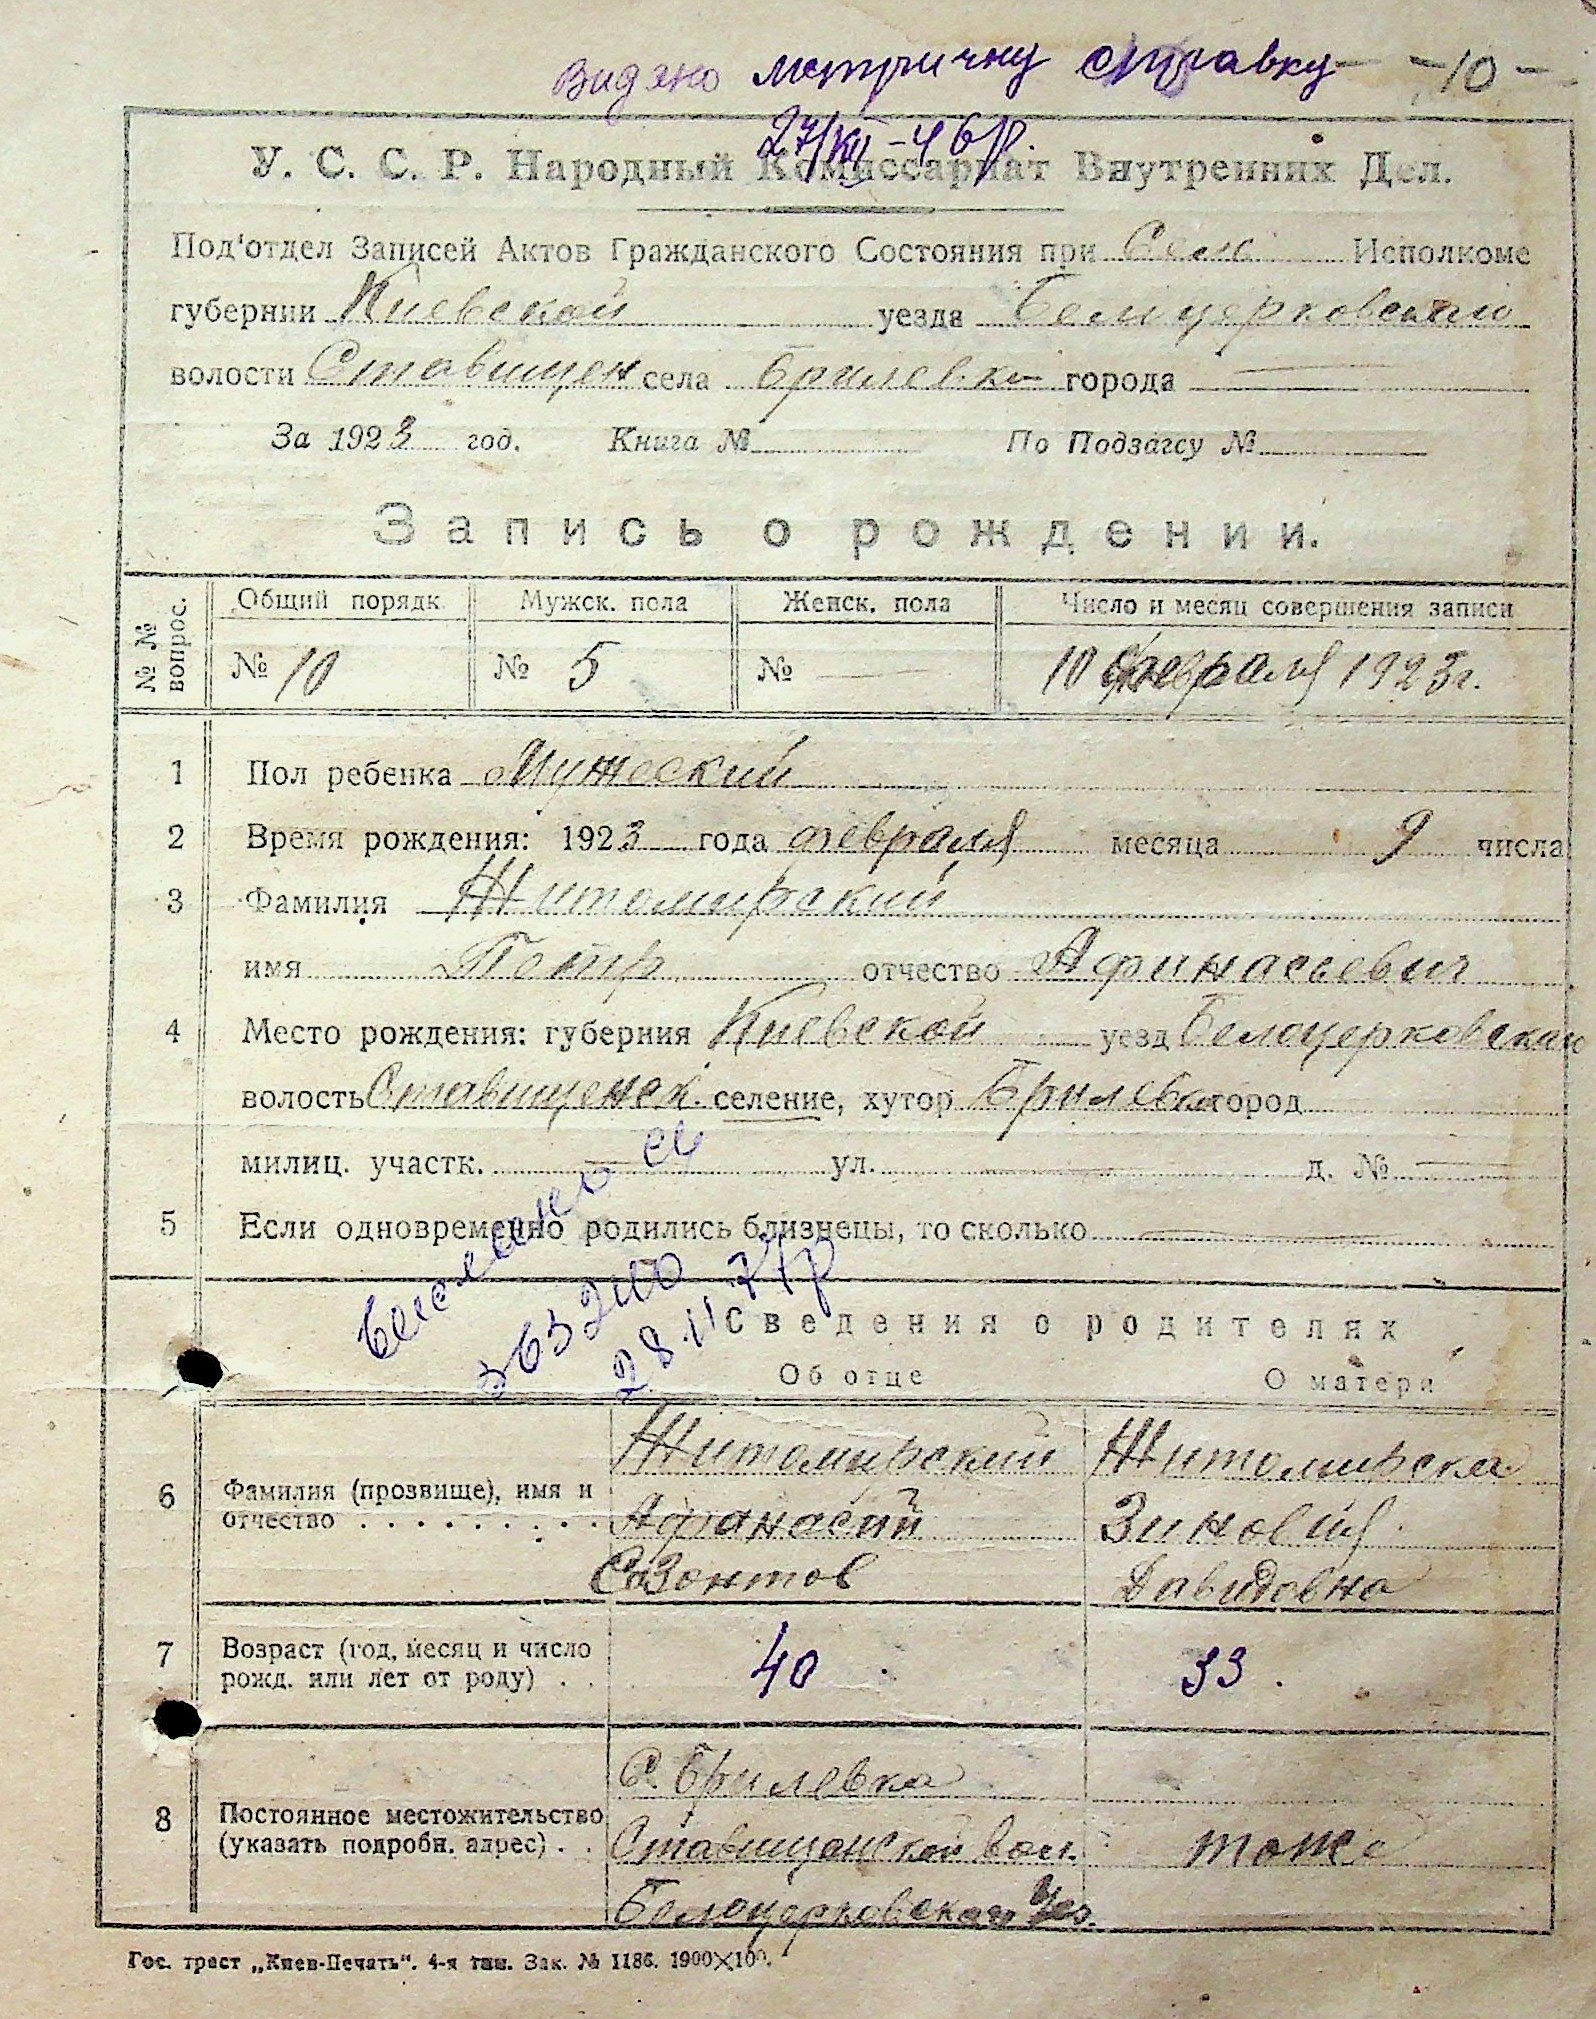 Видано метричну справку -10-
27/XII-46р.
У. С. С. Р. Народный Комиссариат Внутренних Дел.
Под'отдел Записей Актов Гражданского Состояния при Сель Исполкоме
губернии Киевской уезда Белоцерковского
волости Ставищен села Брилевки города —
За 1923 год. Книга № По Подзагсу №
Запись о рождении.
№ № вопрос. Общий порядк. Мужск. пола Женск. пола Число и месяц совершения записи
№ 10 № 5 № — 10 февраля 1923г.
1 Пол ребенка Мужеский
2 Время рождения: 1923 года февраля месяца 9 числа
3 Фамилия Житомирский
имя Петр отчество Афинасьевич
4 Место рождения: губерния Киевской уезд Белоцерковского
волость Ставищенск. селение, хутор Брилевка город
милиц. участк. — ул. — д. № —
5 Если одновременно родились близнецы, то сколько —
28.11.74р
Сведения о родителях
Об отце О матери
6 Фамилия (прозвище), имя и отчество . . . . . . . . .
Житомирский Житомирска
Афанасий Зиновия
Созонтов Давидовна
7 Возраст (год, месяц и число рожд. или лет от роду) . . 40 33.
8 Постоянное местожительство (указать подробн. адрес) . .
С. Брилевка
Ставищанской вол. тоже
Белоцерковского Уез.
Гос. трест „Киев-Печать“. 4-я тип. Зак. № 1186. 1900×100.